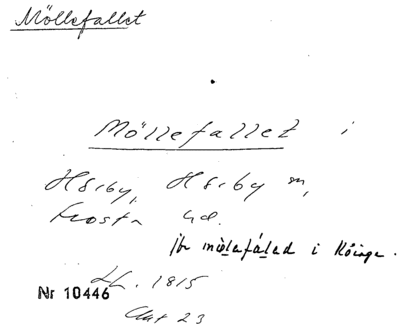 Möllefallet
Möllefallet i
Hörby, Hörby sn,
Frosta hd.
jfr mòlafálad i Köinge.
LL. 1815
Nr 10446
Akt 23